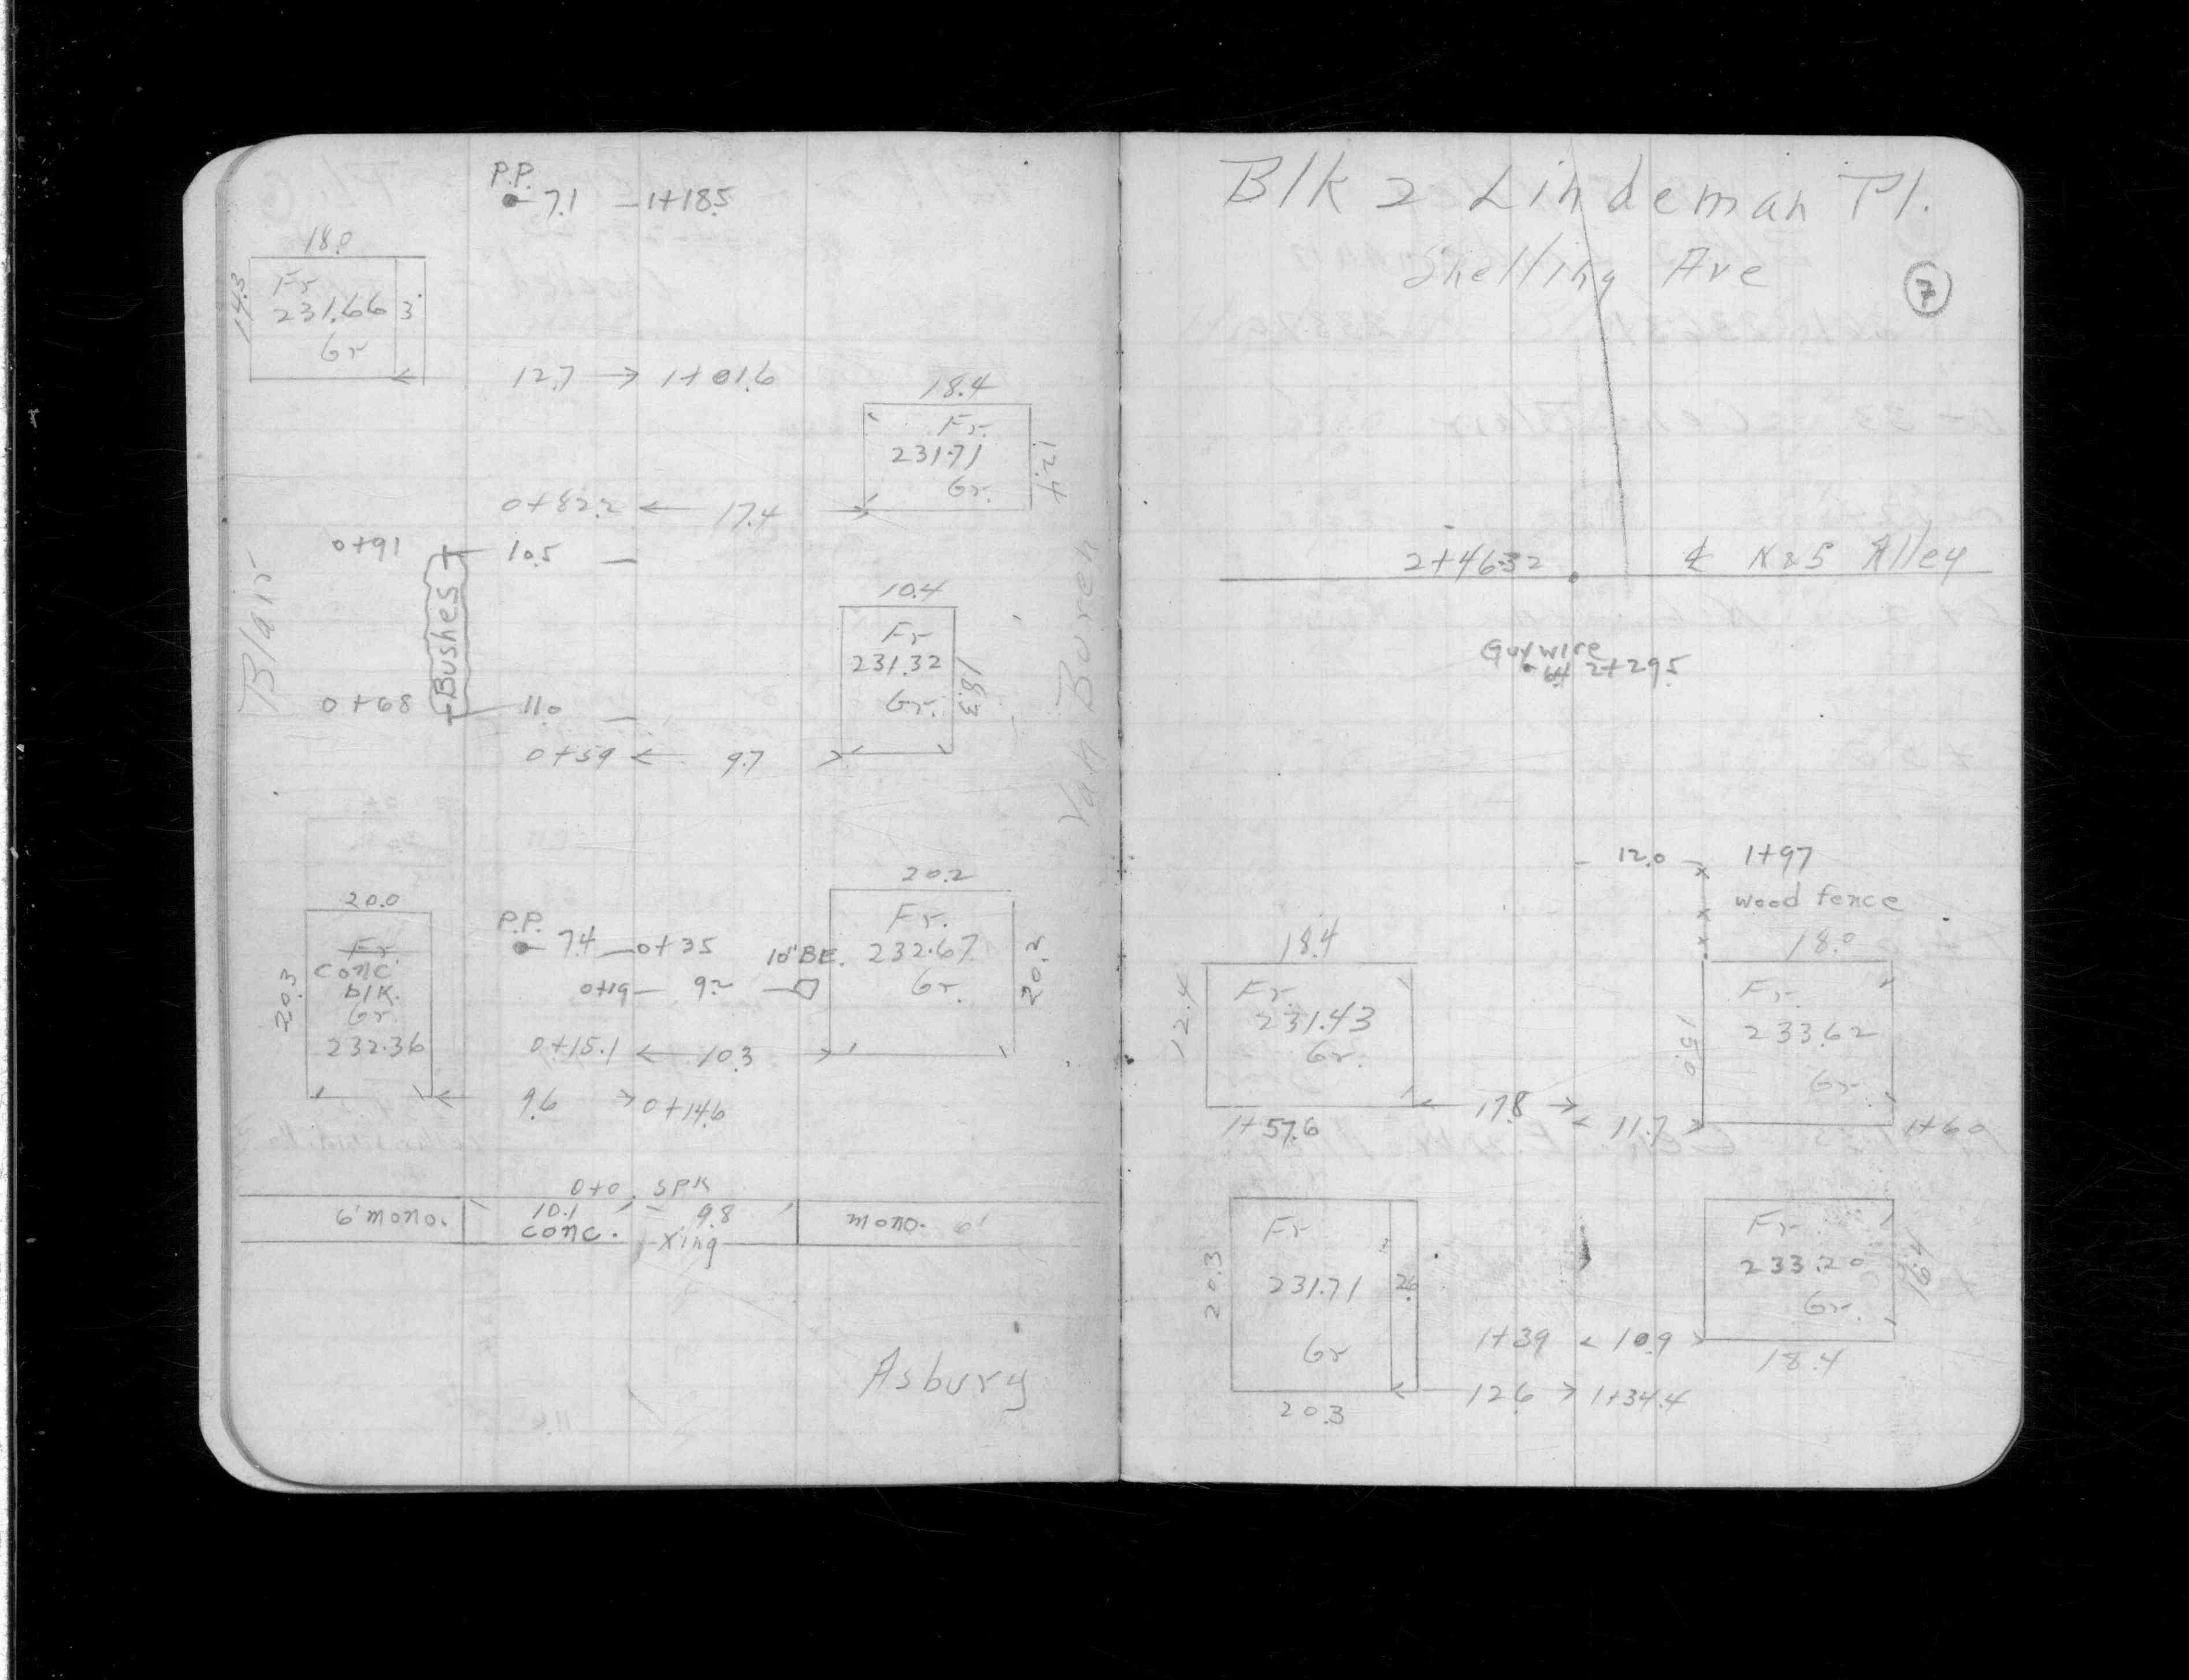 P.P.
7.1 1+18.5
18.0
14.3
Fr
231.66 3'
Gr
12.7 → 1+01.6
18.4
Fr.
231.71
Gr.
12.4
0+82.2 ← 17.4 →
0+91 10.5
Bushes
Blair
Van Buren
10.4
Fr
231.32
Gr.
18.3
0+68 11.0
0+59 ← 9.7 →
20.2
20.0
Fr.
conc.
blk.
Gr.
232.36
20.3
P.P.
7.4 0+35
10" BE.
0+19 9.2
Fr.
232.67
Gr.
20.2
0+15.1 ← 10.3 →
← 9.6 → 0+14.6
0+0 SPK
6' mono. 10.1 9.8 mono. 6'
conc. Xing
Asbury
Blk 2 Lindeman Pl.
Snelling Ave
7
2+46.32 ℄ N & S Alley
Guy wire
2+29.5
12.0 1+97
wood fence
18.4
12.4
Fr.
231.43
Gr.
18.0
Fr.
233.62
Gr.
15.0
← 17.8 →
1+57.6
← 11.7 → 1+60
Fr
231.71 2.6
Gr
20.3
Fr.
233.20
Gr.
16.4
1+39 ← 10.9 →
18.4
← 12.6 → 1+34.4
20.3